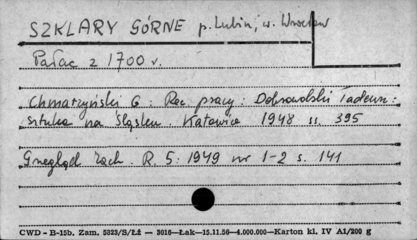 SZKLARY GÓRNE p. Lubin, w. Wrocław
Pałac z 1700 r.
Chmarzyński G: Rec. pracy: Dobrowolski Tadeusz:
sztuka na Śląsku. Katowice 1948 ss. 395
Przegląd Zach. R. 5: 1949 nr 1-2 s. 141
CWD - B-15b. Zam. 5323/S/Łź — 3016—Łak—15.11.56—4.000.000—Karton kl. IV A1/200 g